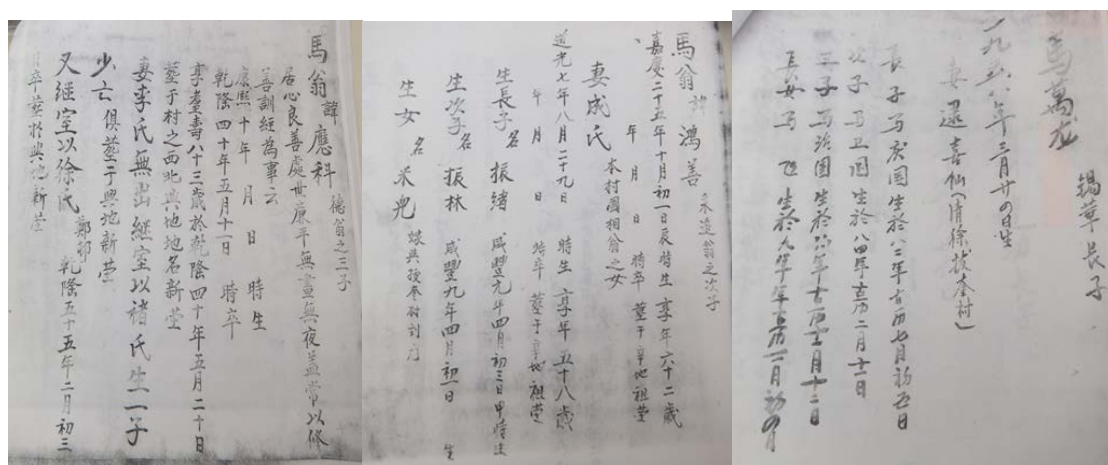 馬翁諱應科 德翁之三子
居心良善處世廉平無晝無夜蓋常以修
善訓經為事云
康熙十年 月 日 時生
乾隆四十年五月十一日 時卒
享耋壽八十三歲於乾隆四十年五月二十日
葬于村之西北與地地名新塋
妻李氏無出繼室以褚氏生一子
少亡俱葬于與地新塋
又繼室以徐氏 鄭邨 乾隆五十五年二月初三
日卒葬於與地新塋
馬翁諱鴻善 永逵翁之次子
嘉慶二十五年十月初一日辰時生 享年六十二歲
年 月 日 時卒 葬于辛地祖塋
妻成氏 本村國相翁之女
道光七年八月二十九日 時生 享年五十八歲
年 月 日 時卒 葬于辛地祖塋
生長子 名 振緒 咸豐元年四月初三日甲時生
生次子 名 振林 咸豐九年四月初一日 生
生女 名 米兜
馬萬龙 錫華長子
一九五六年三月廿四日生
妻 逯喜仙
長子 马庆国 生於八二年古历七月初五日
次子 马卫国 生於八四年古历二月十二日
三子 马治国
長女 马